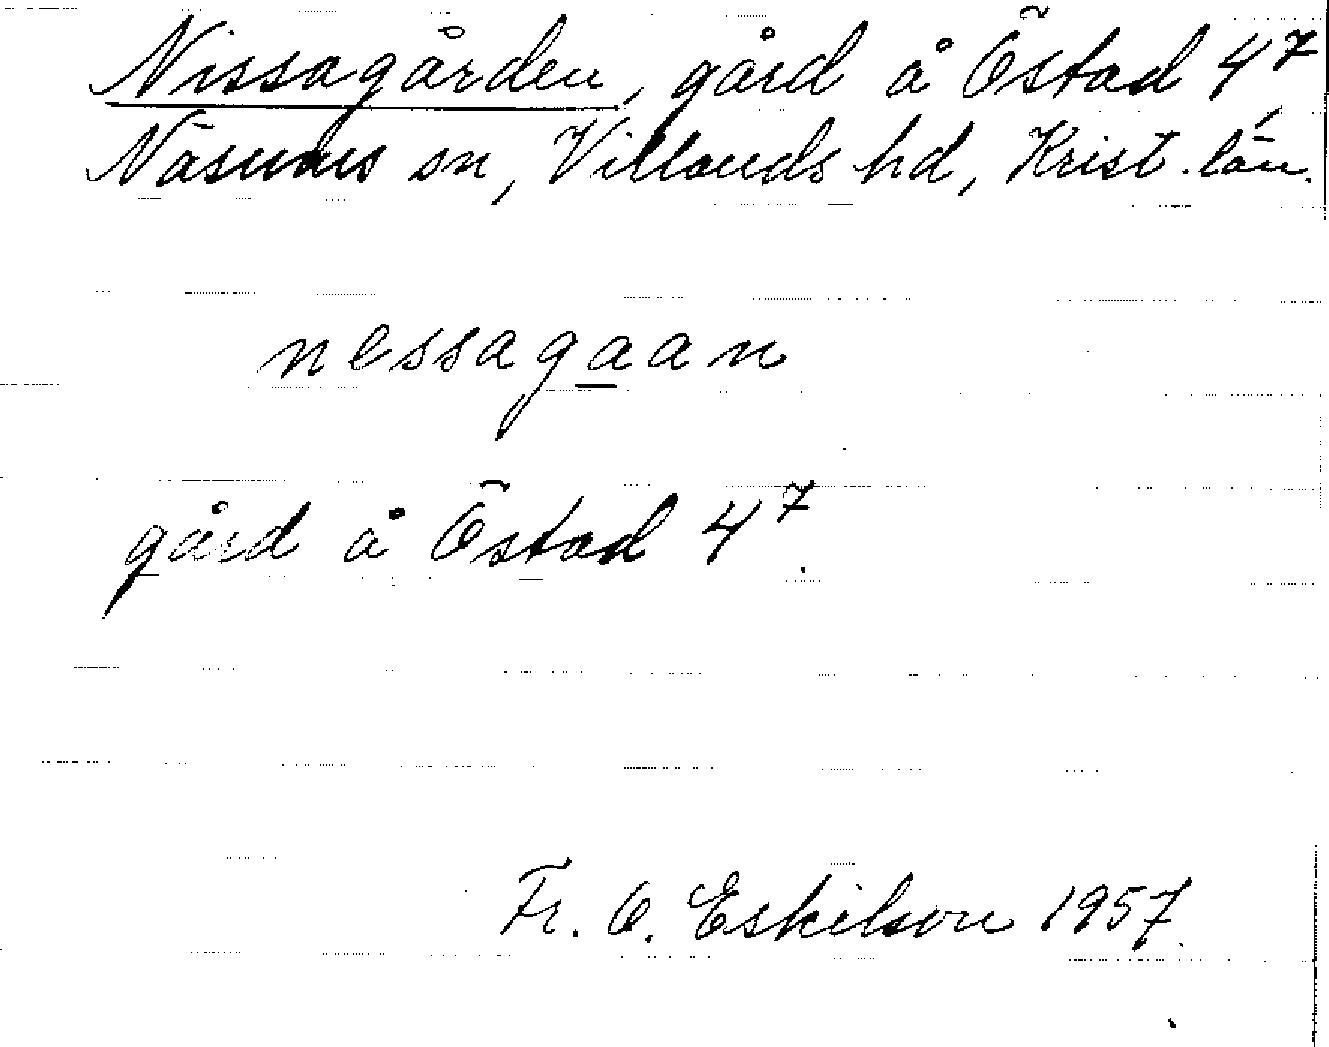 Nissagården, gård å Östad 4⁷,
Näsums sn, Villands hd, Krist. län.
nessagaan
gård å Östad 4⁷.
Fr. O. Eskilson 1957.